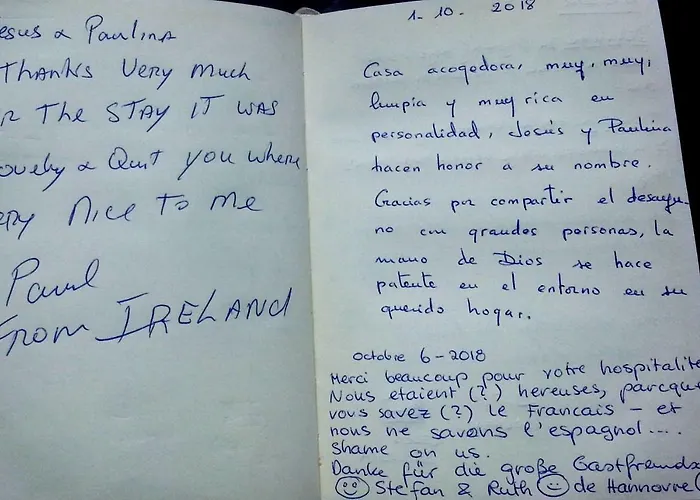 esus & Paulina
Thanks Very much
The STAY IT WAS
ovely & Quit you where
ery Nice To me
Paul
From IRELAND
1-10. 2018
Casa acogedora, muy, muy,
limpia y muy rica en
personalidad, Josús y Paulina
hacen honor a su nombre.
Gracias por compartir el desayu-
no con grandes personas, la
mano de Dios se hace
patente en el entorno en su
querido hogar.
Octobre 6-2018
Merci beaucoup pour votre hospitalite
Nous etaient (?) hereuses, parcque
vous savez (?) le Francais - et
nous ne savons l'espagnol....
Shame on us.
Danke für die große Gastfreunds
Stefan & Ruth de Hannovre